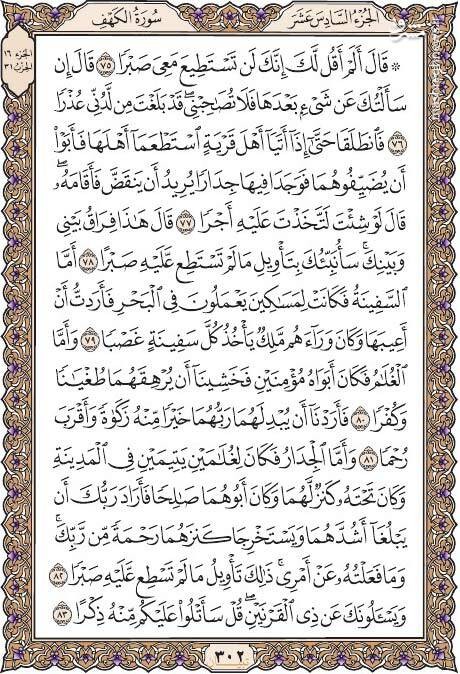 الجزء السادس عشر
سورة الكهف
الجزء ١٦
الحزب ٣١
۞ قَالَ أَلَمْ أَقُل لَّكَ إِنَّكَ لَن تَسْتَطِيعَ مَعِيَ صَبْرًا ٧٥ قَالَ إِن
سَأَلْتُكَ عَن شَيْءٍ بَعْدَهَا فَلَا تُصَاحِبْنِي ۖ قَدْ بَلَغْتَ مِن لَّدُنِّي عُذْرًا
٧٦ فَانطَلَقَا حَتَّىٰ إِذَا أَتَيَا أَهْلَ قَرْيَةٍ اسْتَطْعَمَا أَهْلَهَا فَأَبَوْا
أَن يُضَيِّفُوهُمَا فَوَجَدَا فِيهَا جِدَارًا يُرِيدُ أَن يَنقَضَّ فَأَقَامَهُ ۖ
قَالَ لَوْ شِئْتَ لَتَّخَذْتَ عَلَيْهِ أَجْرًا ٧٧ قَالَ هَٰذَا فِرَاقُ بَيْنِي
وَبَيْنِكَ ۚ سَأُنَبِّئُكَ بِتَأْوِيلِ مَا لَمْ تَسْتَطِع عَّلَيْهِ صَبْرًا ٧٨ أَمَّا
السَّفِينَةُ فَكَانَتْ لِمَسَاكِينَ يَعْمَلُونَ فِي الْبَحْرِ فَأَرَدتُّ أَنْ
أَعِيبَهَا وَكَانَ وَرَاءَهُم مَّلِكٌ يَأْخُذُ كُلَّ سَفِينَةٍ غَصْبًا ٧٩ وَأَمَّا
الْغُلَامُ فَكَانَ أَبَوَاهُ مُؤْمِنَيْنِ فَخَشِينَا أَن يُرْهِقَهُمَا طُغْيَانًا
وَكُفْرًا ٨٠ فَأَرَدْنَا أَن يُبْدِلَهُمَا رَبُّهُمَا خَيْرًا مِّنْهُ زَكَوٰةً وَأَقْرَبَ
رُحْمًا ٨١ وَأَمَّا الْجِدَارُ فَكَانَ لِغُلَامَيْنِ يَتِيمَيْنِ فِي الْمَدِينَةِ
وَكَانَ تَحْتَهُ كَنزٌ لَّهُمَا وَكَانَ أَبُوهُمَا صَالِحًا فَأَرَادَ رَبُّكَ أَن
يَبْلُغَا أَشُدَّهُمَا وَيَسْتَخْرِجَا كَنزَهُمَا رَحْمَةً مِّن رَّبِّكَ ۚ
وَمَا فَعَلْتُهُ عَنْ أَمْرِي ۚ ذَٰلِكَ تَأْوِيلُ مَا لَمْ تَسْطِع عَّلَيْهِ صَبْرًا ٨٢
وَيَسْـَٔلُونَكَ عَن ذِي الْقَرْنَيْنِ ۖ قُلْ سَأَتْلُوا عَلَيْكُم مِّنْهُ ذِكْرًا ٨٣
٣٠٢